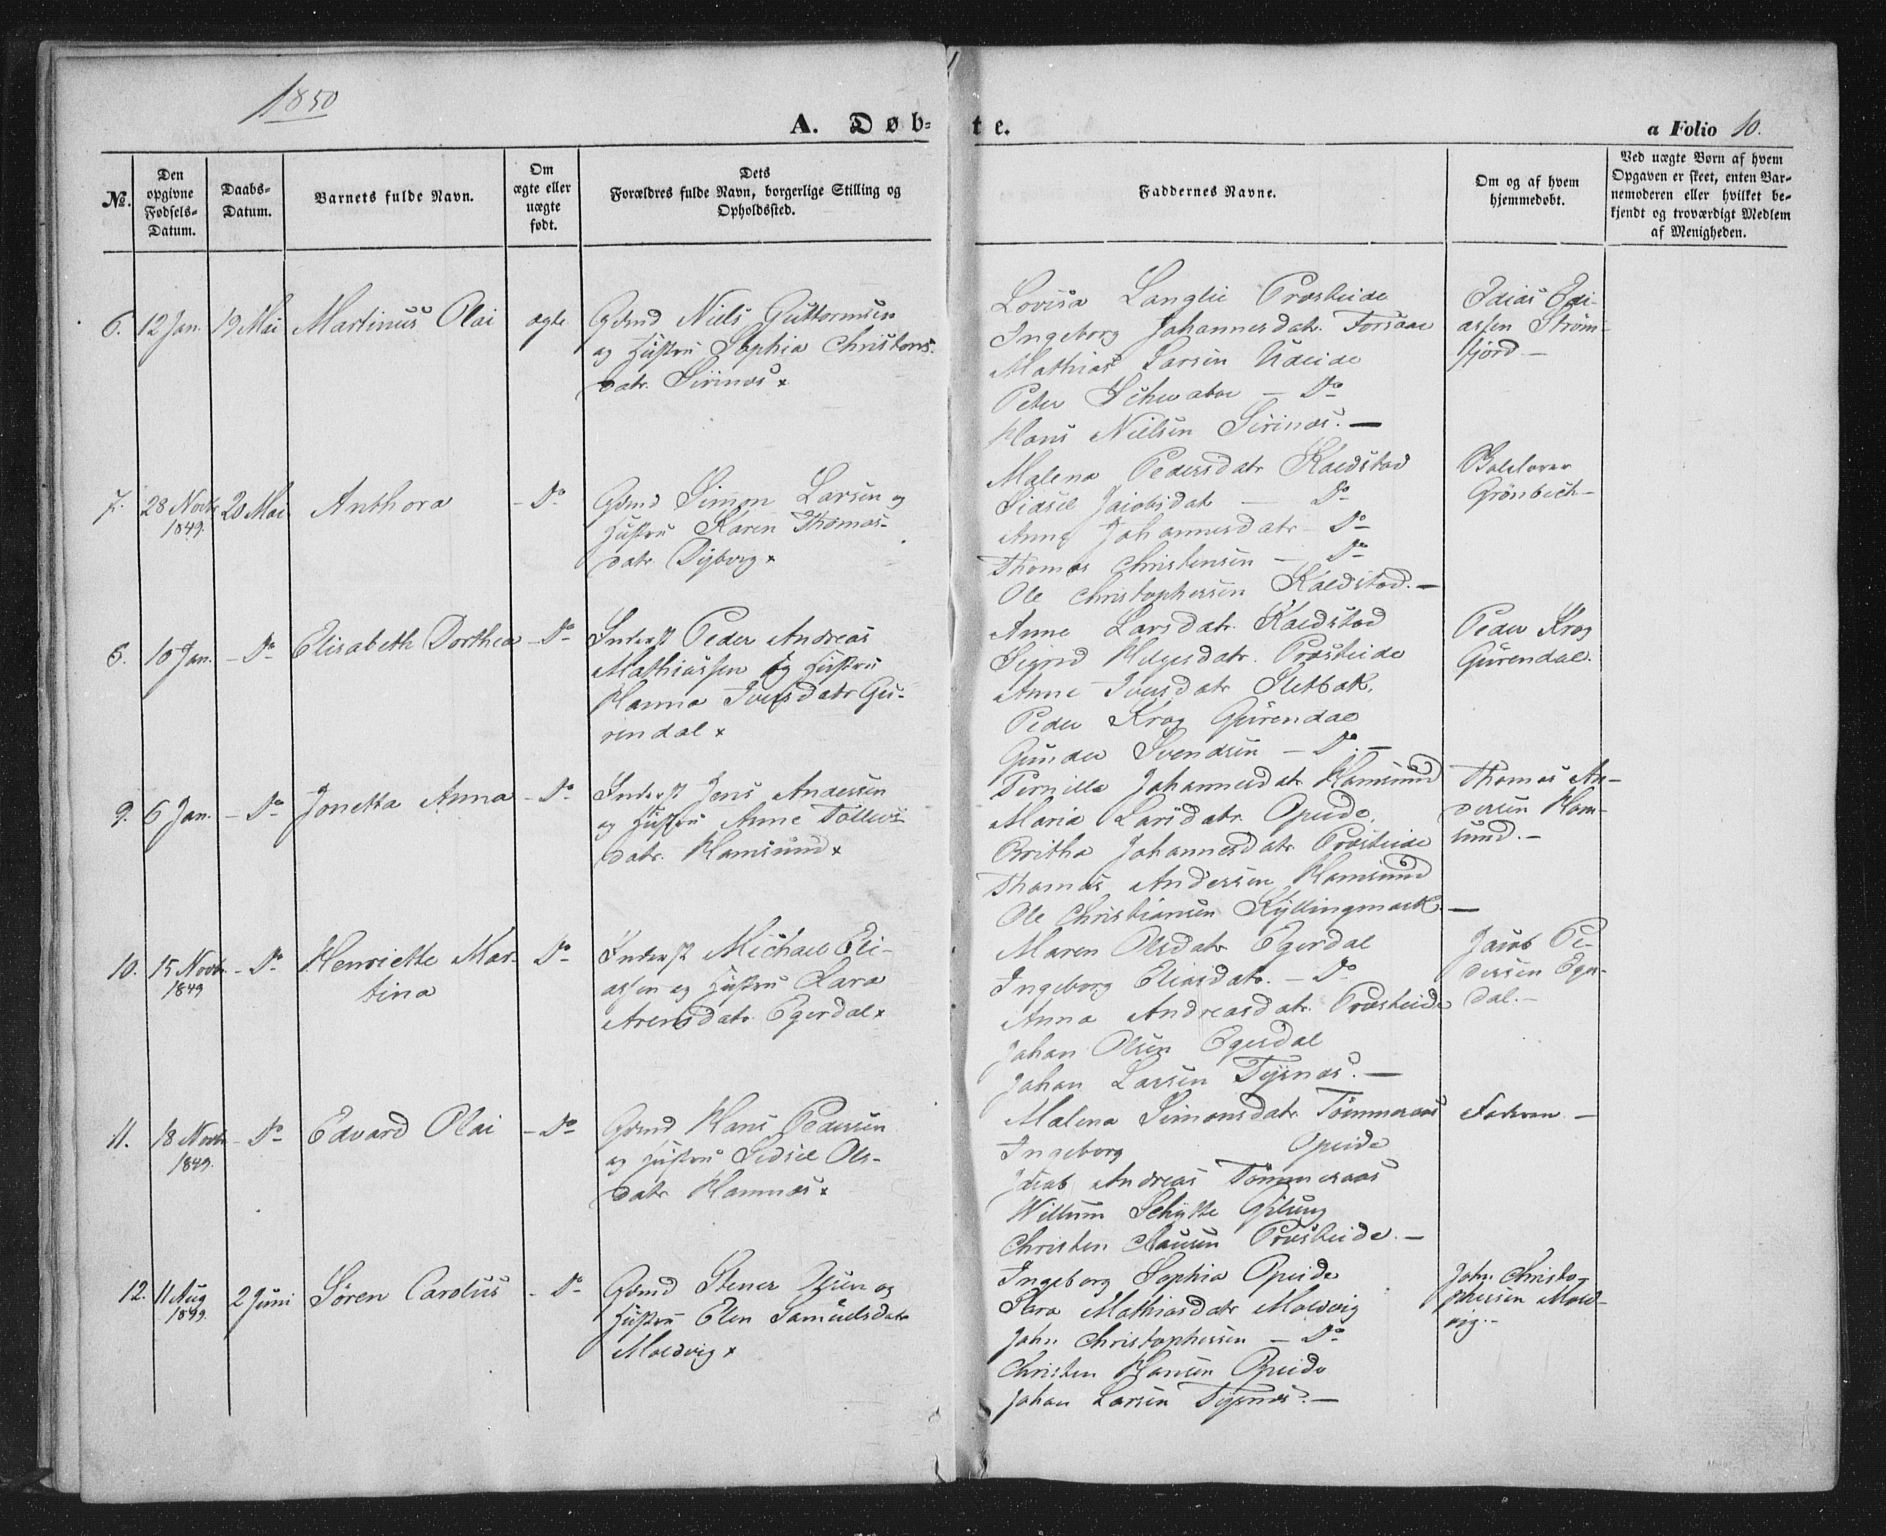 1850
A. Døb-
te.
a Folio 10.
№.
Den
opgivne
Fødsels-
Datum.
Daabs-
Datum.
Barnets fulde Navn.
Om
ægte eller
uægte
født.
Dets
Forældres fulde Navn, borgerlige Stilling og
Opholdssted.
Faddernes Navne.
Om og af hvem
hjemmedøbt.
Ved uægte Børn af hvem
Opgaven er skeet, enten Bar-
nemoderen eller hvilket be-
kjendt og troværdigt Medlem
af Menigheden.
6. 12 Jan. 19 Mai Martinus Olai ægte
Gdmd Niels Guttormsen
og Hustru Sophia Christens-
datr. Sirinæs x
Lovisa Langlie Presteide
Ingeborg Johannesdatr. Forsaae
Mathias Larsen Uteide
Peter Schwabe — Do
Hans Nielsen Sirinæs. —
Edias Edi-
assen Strøm-
fjord —
7. 28 Novbr 1849. 20 Mai Anthora - Do
Gdmd Simon Larsen og
Hustru Karen Thomas-
datr. Dyberg x
Malena Pedersdatr Kaldstad
Sidsel Jacobsdatr — Do
Anne Johannesdatr — Do
Thomas Christensen — Do
Ole Christophersen Kaldstad. —
Grønbech —
8. 10 Jan. - Do Elisabeth Dorthea - Do
Inderst Peder Andreas
Mathiassen og Hustru
Hanna Iversdatr Gu-
rendal x
Anne Larsdatr. Kaldstad
Sigrid Helgesdatr. Presteide
Anne Iversdatr Sletbak.
Peder Krog Gurendal
Gunder Svendsen — Do —
Peder Krog
Gurendal.
9. 6 Jan. - Do Jonetta Anna - Do
Inderst Jens Andersen
og Hustru Anne Tollevs-
datr. Hamsund x
Pernilla Johannesdatr Hamsund
Maria Larsdatr. Opeide.
Britha Johannesdatr Presteide
Thomas Andersen Hamsund
Ole Christiansen Kyllingmark —
Thomas An-
dersen Ham-
sund. —
10. 15 Novbr 1849 - Do Henriette Mar-
tina Do
Inderst Michael Eli-
assen og Hustru Lara
Arensdatr. Egerdal x
Maren Olsdatr Egerdal
Ingeborg Eliasdatr. — Do
Anna Andreasdatr. Presteide
Johan Olsen Egerdal
Johan Larsen Tysnæs. —
Jacob Pe-
dersen Eger-
dal. —
11. 18 Novbr 1849. - Do Edvard Olai - Do
Gdmd Hans Pedersen
og Hustru Sidsel Ols-
datr Hamnæs x
Malena Simonsdatr Tømmeraas
Ingeborg Opeide
Jacob Andreas Tømmeraas
Willum Schytte
Christen Clausen Presteide. —
Faderen. —
12. 11 Aug 1849. 2 Juni Søren Carolus - Do
Gdmd Stener Olsen og
Hustru Elen Samuelsdatr
Moldvig x
Ingeborg Sophia Opeide
Sara Mathiasdatr Moldvig
John Christophersen — Do
Christen Hansen Opeide
Johan Larsen Tysnæs. —
John Christo-
phersen Mold-
vig. —